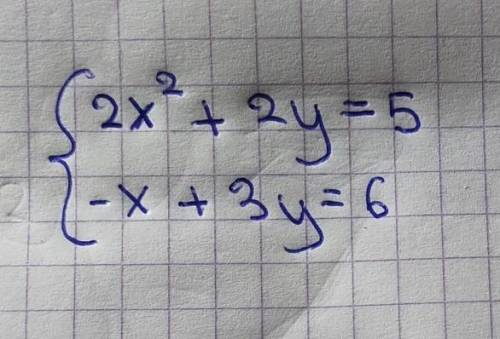 { 2x² + 2y = 5
-x + 3y = 6